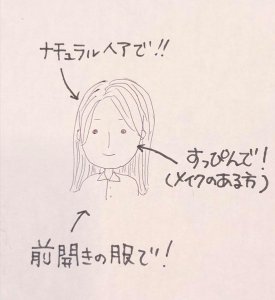 ナチュラルヘアで!!
すっぴんで!
(メイクのある方)
前開きの服で!